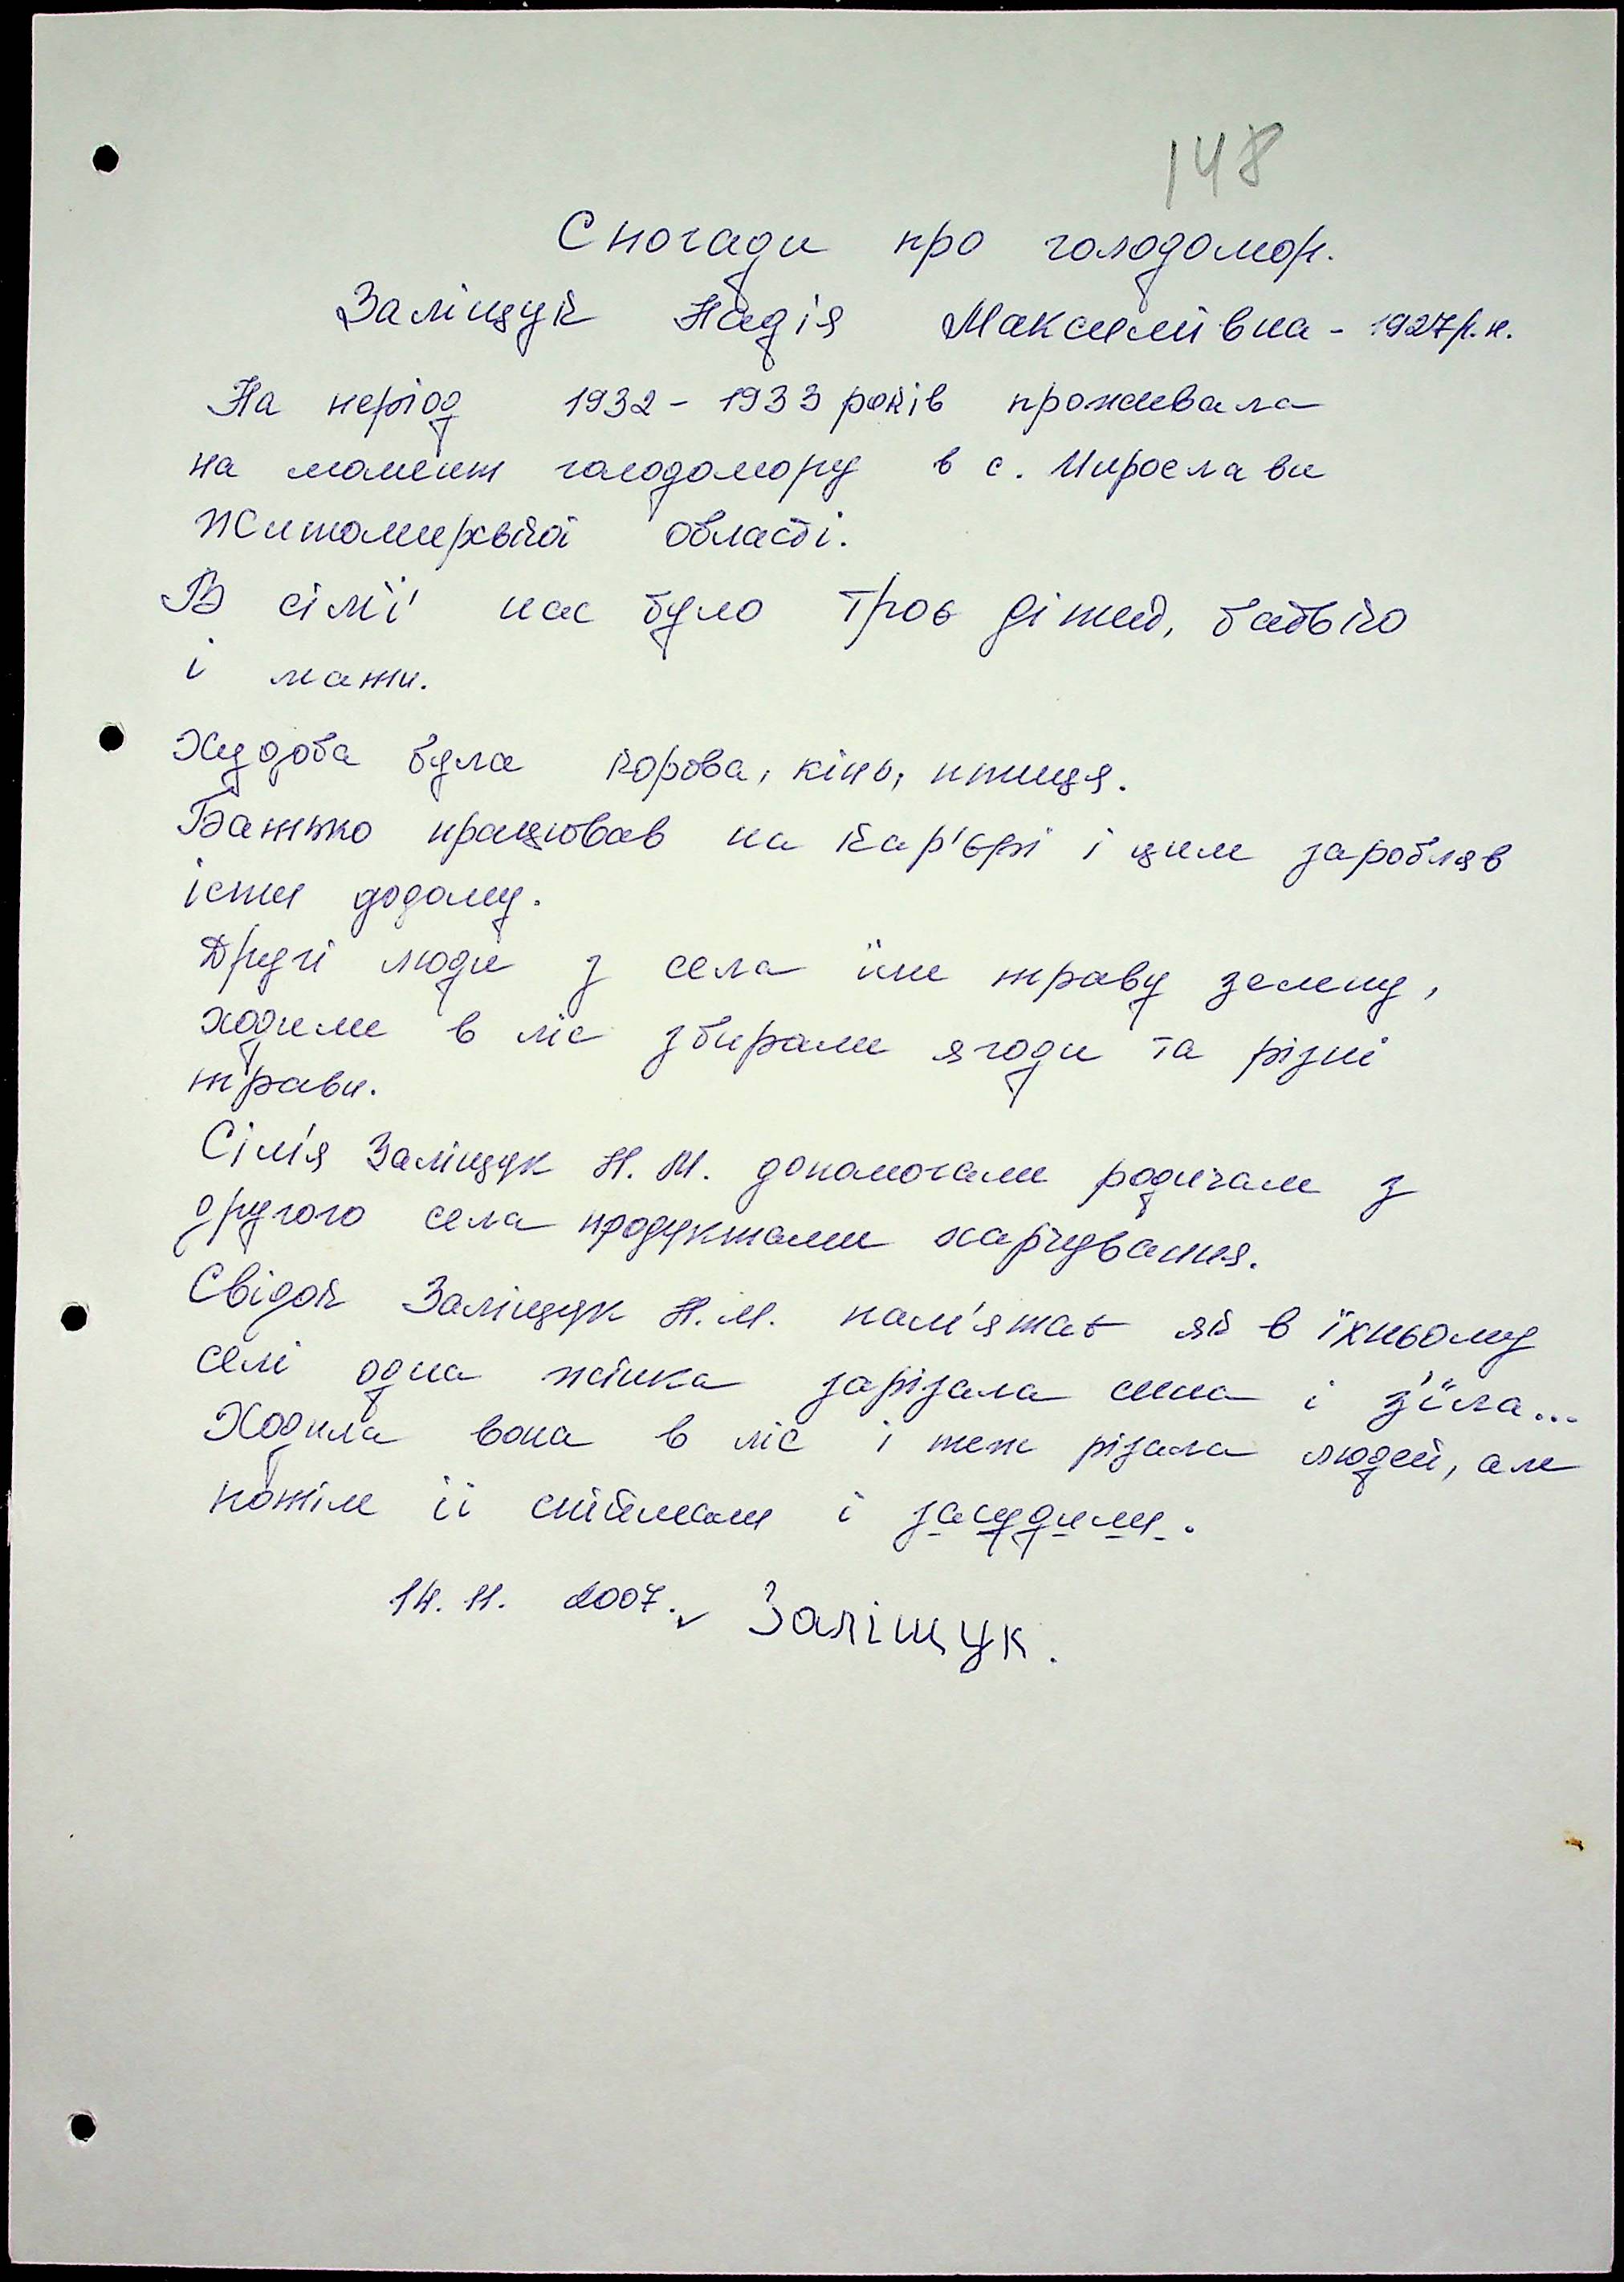 148
Спогади про голодомор.
Заліщук Надія Максимівна - 1927 р.н.
На період 1932 - 1933 років проживала
на момент голодомору в с. Мирослави
Житомирської області.
В сім'ї нас було троє дітей, батько
і мати.
Худоба була корова, кінь, птиця.
Батько працював на кар'єрі і цим заробляв
їсти додому.
Другі люди з села їли траву зелену,
ходили в ліс збирали ягоди та різні
трави.
Сім'я Заліщук Н. М. допомогали родичам з
другого села продуктами харчування.
Свідок Заліщук Н.М. пам'ятає як в їхньому
селі одна жінка зарізала сина і з'їла...
Ходила вона в ліс і теж різала людей, але
потім її спіймали і засудили.
14. 11. 2007. Заліщук.